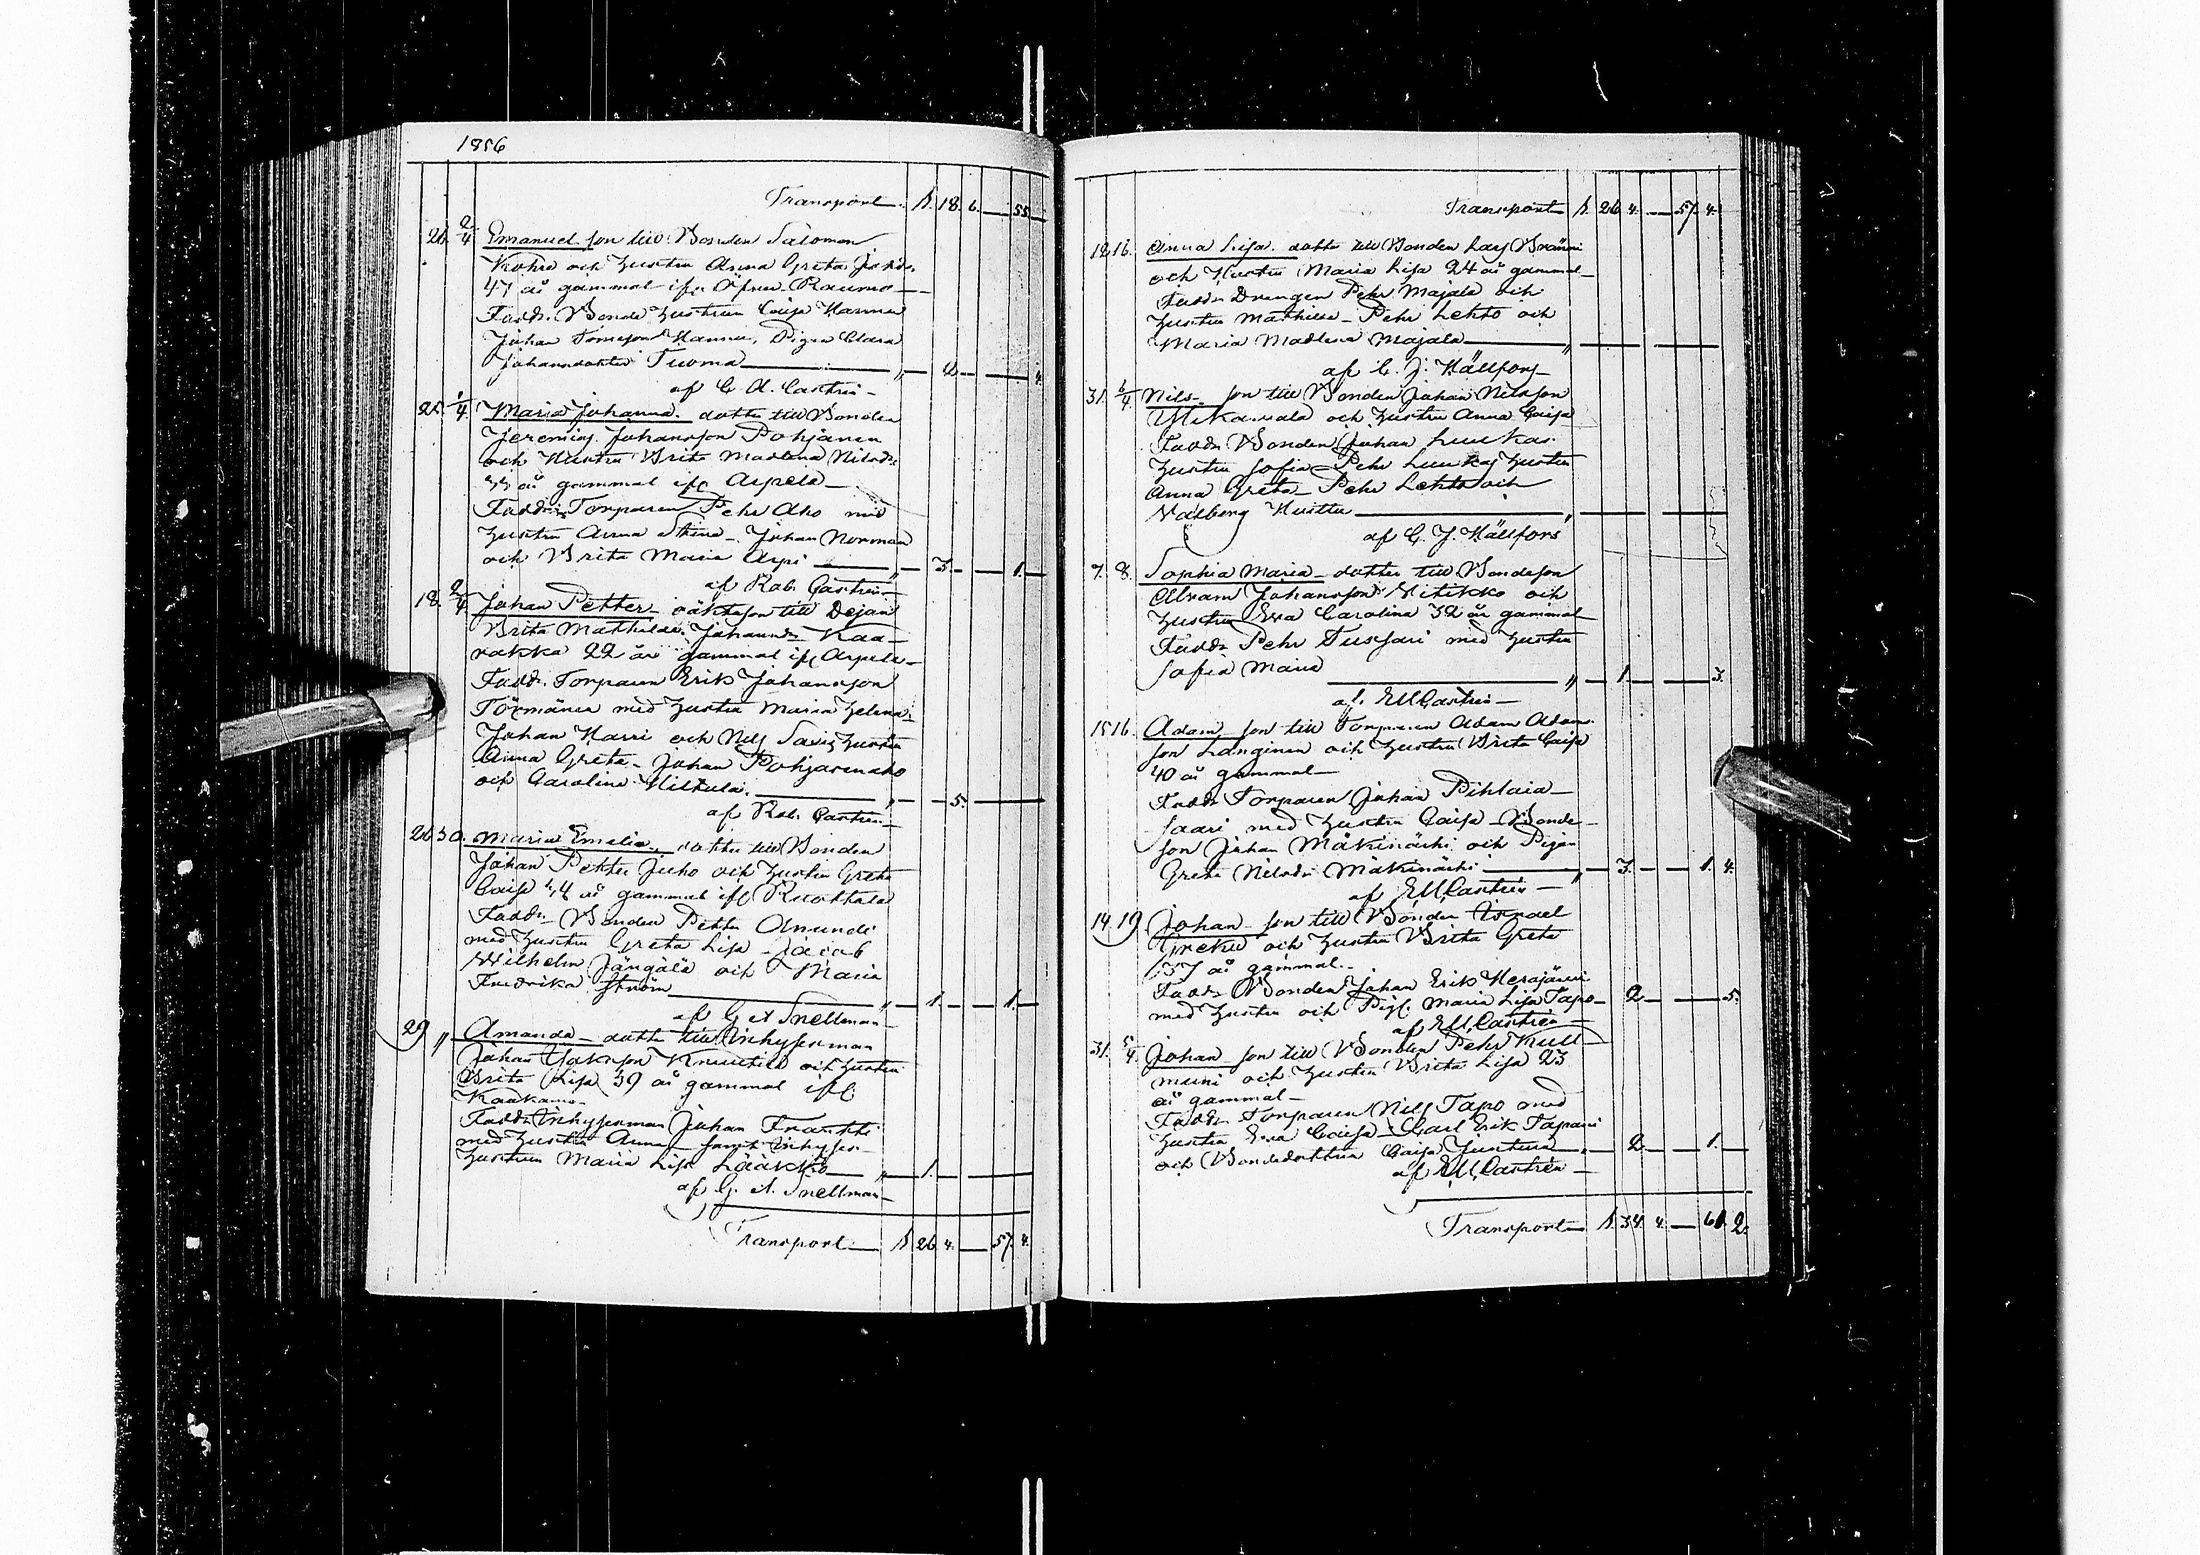 1856
Transport. S. 18. 6. — 55.
26. 2/4 Emanuel son till Bonden Salomon
Kohra och Hustru Anna Greta
47 år gammal ifr. Öfver-Raumo
Fadd. Bonde Hustrun Caisa Hannu
Johan Hannu, Pigan Clara
Johansdotter Tuoma — " — 2. — 4.
af C. A. Castrén
25. 1/4 Maria Johanna. dotter till Bonden
Jeremias Johansson Pohjanen
och Hustru Brita Madlena Nilsdr.
år gammal ifr Arpela
Fadd. Torparen Pehr Aho med
Hustru Anna Stina. Johan Norman
och Brita Maria Arpi — " — 3. — 1. —
af Rob. Castrén
18. 2/4 Johan Petter oäkta son till Dejan
Brita Mathilda Johansdr. Kaa-
rakka 22 år gammal ifr Arpela
Fadd. Torparen Erik Johansson
Törmänen med Hustru Maria Helena.
Johan Harri och Nils Hustru
Anna Greta. Johan Pohjasenaho
och Carolina Hiltula. — " — 5. —
af Rob. Castrén
26 30. Maria Emelia. dotter till Bonden
Johan Petter Juho och Hustru Greta
Caisa 44 år gammal ifr Ruottala
Fadd. Bonden Petter Amundi
med Hustru Greta Lisa Jacob
Wilhelm Jängälä och Maria
Fredrika Ström — " — 1. — 1. —
af G A Snellman
29 " Amanda dotter till Inhysesman
Johan Knuutila och Hustru
Brita Lisa 39 år gammal ifr
Kaakamo
Fadd. Inhysesman Johan Frantti
med Hustru Anna samt Inhyses-
Hustrun Maria Lisa Lääkkö — " — 1. —
af G. A. Snellman
Transport S. 26. 4. — 57. 4.
Transport S. 26. 4. — 57. 4.
12 16. Anna Lisa. dotter till Bonden Lars Bränni
och Hustru Maria Lisa 24 år gammal
Fadd. Drengen Pehr Majala och
Hustru Mathilda Pehr Lehto och
Maria Madlena Majala — "
af C. J. Hällfors
31. 6/4. Nils son till Bonden Johan Nilsson
och Hustru Anna Caisa
Fadd. Bonden Johan Luukas
Hustru Sofia Pehr Luukas Hustru
Anna Greta Pehr Lehto och
Valborg Huitu — "
af C. J. Hällfors
7. 8. Sophia Maria dotter till Bondeson
Abram Johansson Hitikko och
Hustru Eva Carolina 32 år gammal
Fadd. Pehr Tussari med Hustru
Sofia Maria — " — 1. — 3.
af. E M Castrén
15 16. Adam son till Torparen Adam Adam-
son Länginen och Hustru Brita Caisa
40 år gammal
Fadd. Torparen Johan Pihlaia-
saari med Hustru Caisa Bonde-
son Johan Mäkinärhi och Pigan
Greta Nilsdr. Mäkinärhi — " — 3. — 1. 4.
af E M Castrén
14. 19. Johan son till Bonden Israel
Greku och Hustru Brita Greta
37 år gammal.
Fadd. Bonden Johan Erik Herajärvi
med Hustru och Pig. Maria Lisa Tapo — 2 — 5.
af E M Castrén
31. 5/4. Johan son till Bonden Pehr Kull-
muni och Hustru Brita Lisa 23
år gammal
Fadd. Torparen Nils Tapo med
Hustru Eva Caisa Carl Erik Tapani
och Bondedottren Caisa Juntura — " — 2. — 1. —
af E M Castrén
Transport S. 34. 4. — 61. 2.